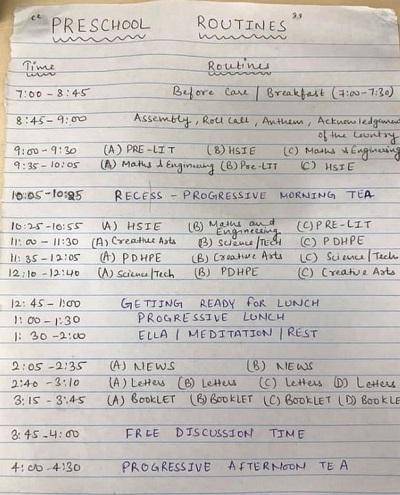 " PRESCHOOL ROUTINES "
Time Routines
7:00 - 8:45 Before Care | Breakfast (7:00-7:30)
8:45 - 9:00 Assembly, Roll Call, Anthem, Acknowledgement
of the Country
9:00 - 9:30 (A) PRE-LIT (B) HSIE (C) Maths & Engineering
9:35 - 10:05 (A) Maths & Engineering (B) Pre-LIT (C) HSIE
10:05-10:25 RECESS - PROGRESSIVE MORNING TEA
10:25-10:55 (A) HSIE (B) Maths and Engineering (C) PRE-LIT
11:00 - 11:30 (A) Creative Arts (B) Science/Tech (C) PDHPE
11:35 - 12:05 (A) PDHPE (B) Creative Arts (C) Science/Tech
12:10 - 12:40 (A) Science/Tech (B) PDHPE (C) Creative Arts
12:45 - 1:00 GETTING READY FOR LUNCH
1:00 - 1:30 PROGRESSIVE LUNCH
1:30 - 2:00 ELLA | MEDITATION | REST
2:05 - 2:35 (A) NEWS (B) NEWS
2:40 - 3:10 (A) Letters (B) Letters (C) Letters (D) Letters
3:15 - 3:45 (A) BOOKLET (B) BOOKLET (C) BOOKLET (D) BOOKLE
3:45 - 4:00 FREE DISCUSSION TIME
4:00 - 4:30 PROGRESSIVE AFTERNOON TEA